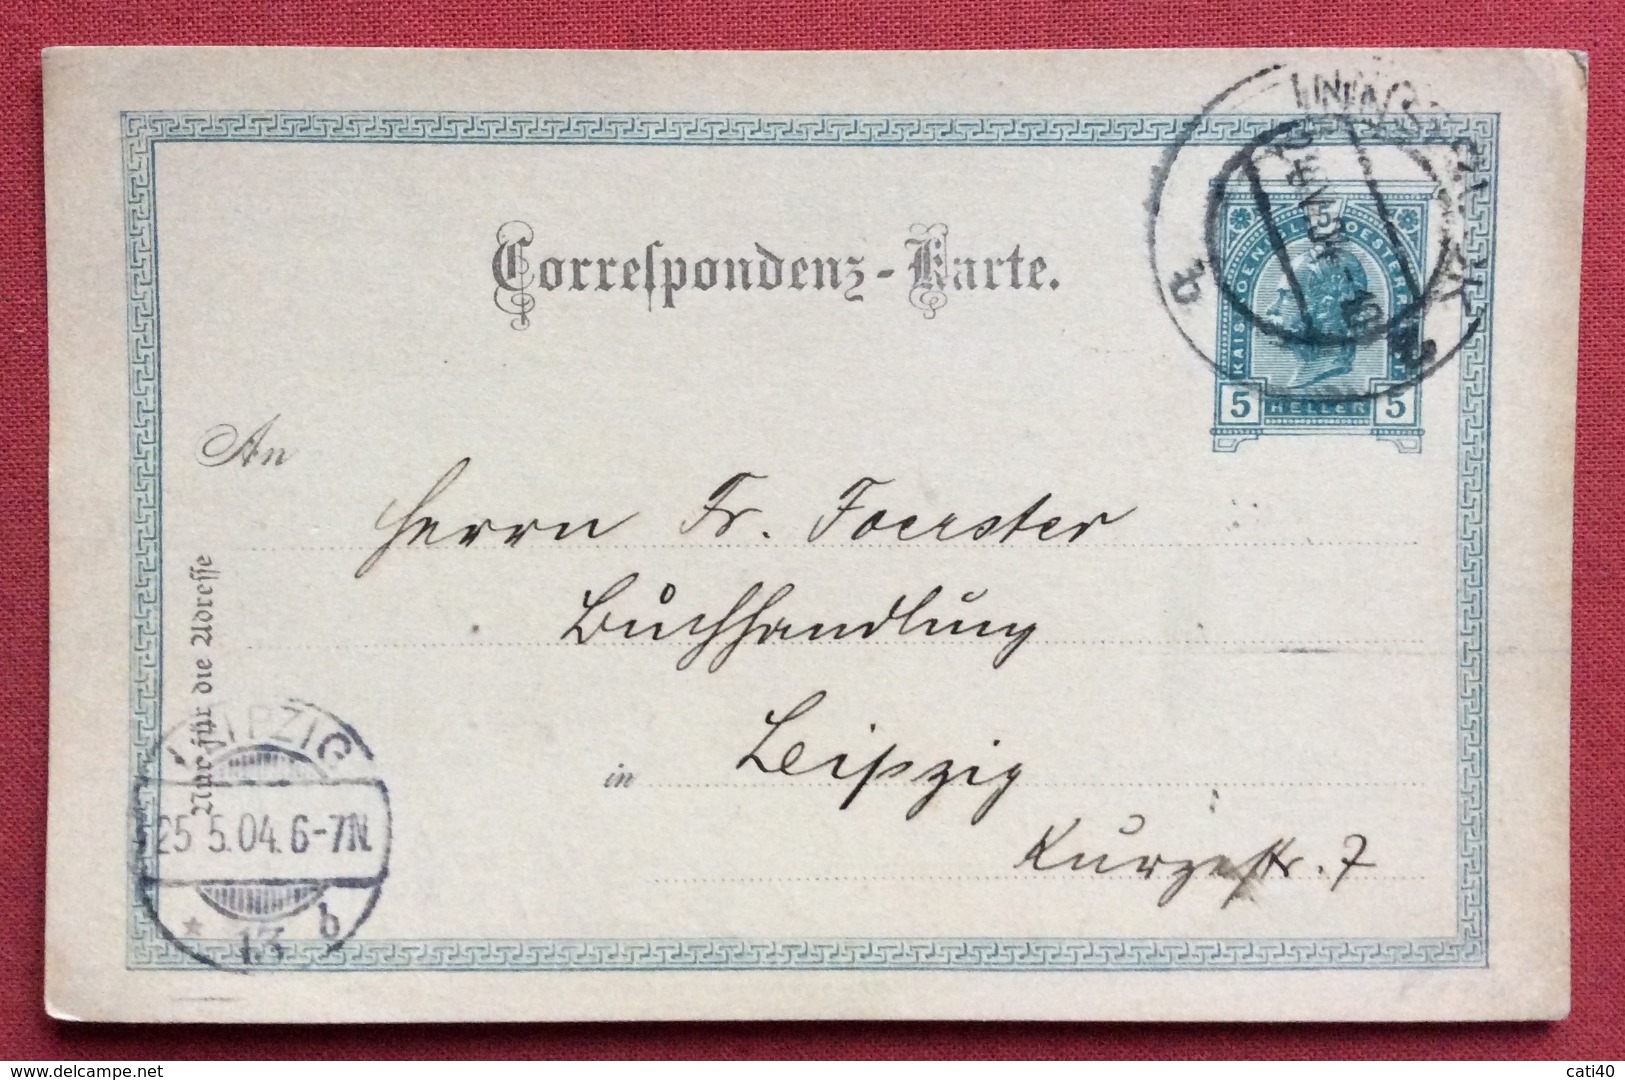 INNSBRUCK
Correspondenz-Karte.
KAIS. KOENIGL. OESTERR.
5 HELLER 5
An
Herrn Fr. Foerster
Buchhandlung
in Leipzig
Kurzestr. 7
Nur für die Adresse
LEIPZIG
25 5.04. 6-7N.
* 13 b
cati40